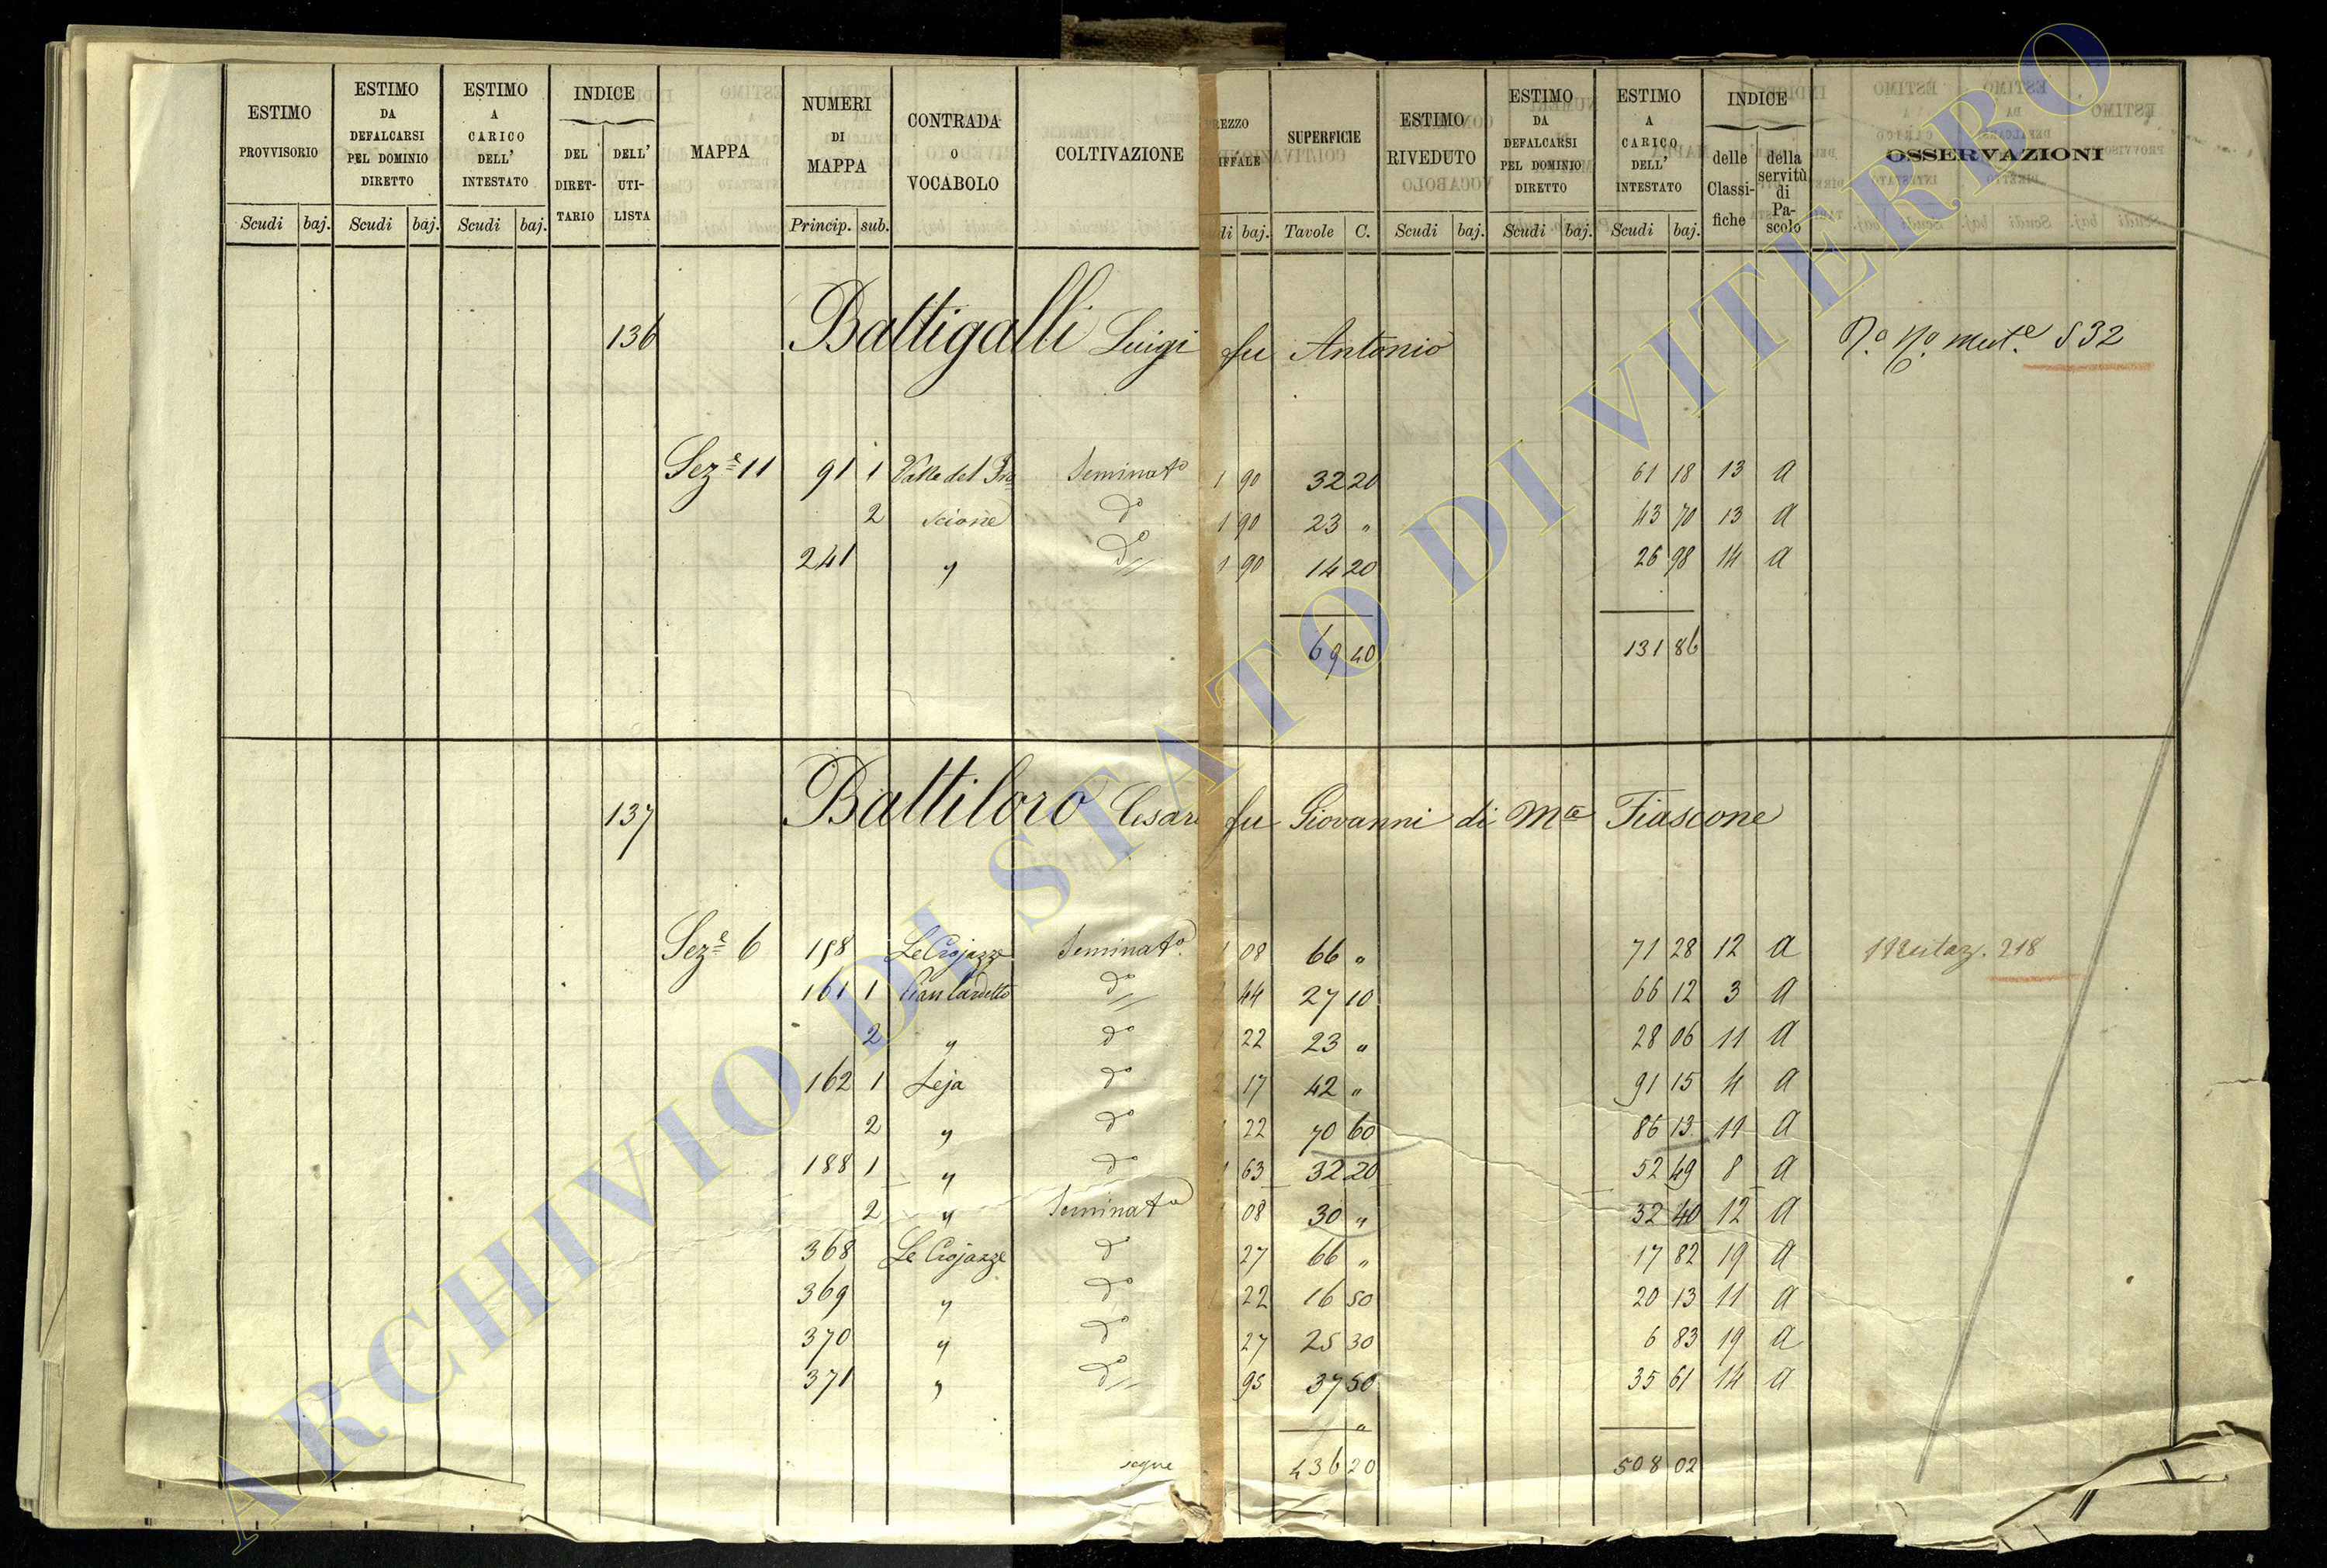 ESTIMO PROVVISORIO | ESTIMO DA DEFALCARSI PEL DOMINIO DIRETTO | ESTIMO A CARICO DELL' INTESTATO | INDICE DEL DIRET-TARIO | DELL' UTI-LISTA | MAPPA | NUMERI DI MAPPA | CONTRADA O VOCABOLO | COLTIVAZIONE | REZZO IFFALE | SUPERFICIE | ESTIMO RIVEDUTO | ESTIMO DA DEFALCARSI PEL DOMINIO DIRETTO | ESTIMO A CARICO DELL' INTESTATO | INDICE delle Classi-fiche | della servitù di Pa-scolo | OSSERVAZIONI
Scudi baj. Scudi baj. Scudi baj. Princip. sub. di baj. Tavole C. Scudi baj. Scudi baj. Scudi baj.
136 Battigalli Luigi fu Antonio 532
Sez.e 11 91 1 Valle del Fra Seminat.o 1 90 32 20 61 18 13 a
2 scione d.o 1 90 23 " 43 70 13 a
241 " d.o 1 90 14 20 26 98 14 a
69 40 131 86
137 Battiloro Cesare fu Giovanni di M.a Fiascone
Sez.e 6 158 Le Crojazze Seminat.o 1 08 66 " 71 28 12 a Mutaz. 218
161 1 Pian Cardetto d.o 2 44 27 10 66 12 3 a
2 " d.o 1 22 23 " 28 06 11 a
162 1 Leja d.o 2 17 42 " 91 15 4 a
2 " d.o 1 22 70 60 86 13 11 a
188 1 " d.o 1 63 32 20 52 49 8 a
2 " Seminato 1 08 30 " 32 40 12 a
368 Le Crojazze d.o 27 66 " 17 82 19 a
369 " d.o 1 22 16 50 20 13 11 a
370 " d.o 27 25 30 6 83 19 a
371 " d.o 95 37 50 35 61 14 a
"
segue 436 20 508 02
ARCHIVIO DI STATO DI VITERBO